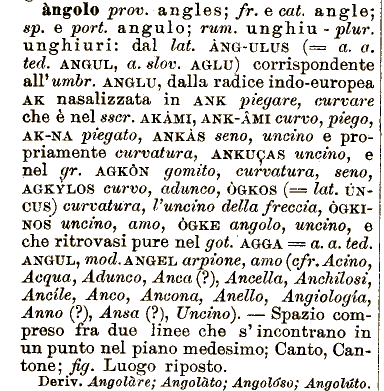 àngolo prov. angles; fr. e cat. angle;
sp. e port. angulo; rum. unghiu - plur.
unghiuri: dal lat. ÀNG-ULUS (= a. a.
ted. ANGUL, a. slov. AGLU) corrispondente
all'umbr. ANGLU, dalla radice indo-europea
AK nasalizzata in ANK piegare, curvare
che è nel sscr. AKÀMI, ANK-ÂMI curvo, piego,
AK-NA piegato, ANKÀS seno, uncino e pro-
priamente curvatura, ANKUÇAS uncino, e
nel gr. AGKÔN gomito, curvatura, seno,
AGKÝLOS curvo, adunco, ÒGKOS (= lat. ÚN-
CUS) curvatura, l'uncino della freccia, ÒGKI-
NOS uncino, amo, ÒGKE angolo, uncino, e
che ritrovasi pure nel got. AGGA = a. a. ted.
ANGUL, mod. ANGEL arpione, amo (cfr. Acino,
Acqua, Adunco, Anca (?), Ancella, Anchilosi,
Ancíle, Anco, Ancona, Anello, Angiología,
Anno (?), Ansa (?), Uncino). — Spazio com-
preso fra due linee che s'incontrano in
un punto nel piano medesimo; Canto, Can-
tone; fig. Luogo riposto.
Deriv. Angolàre; Angolàto; Angolóso; Angolúto.